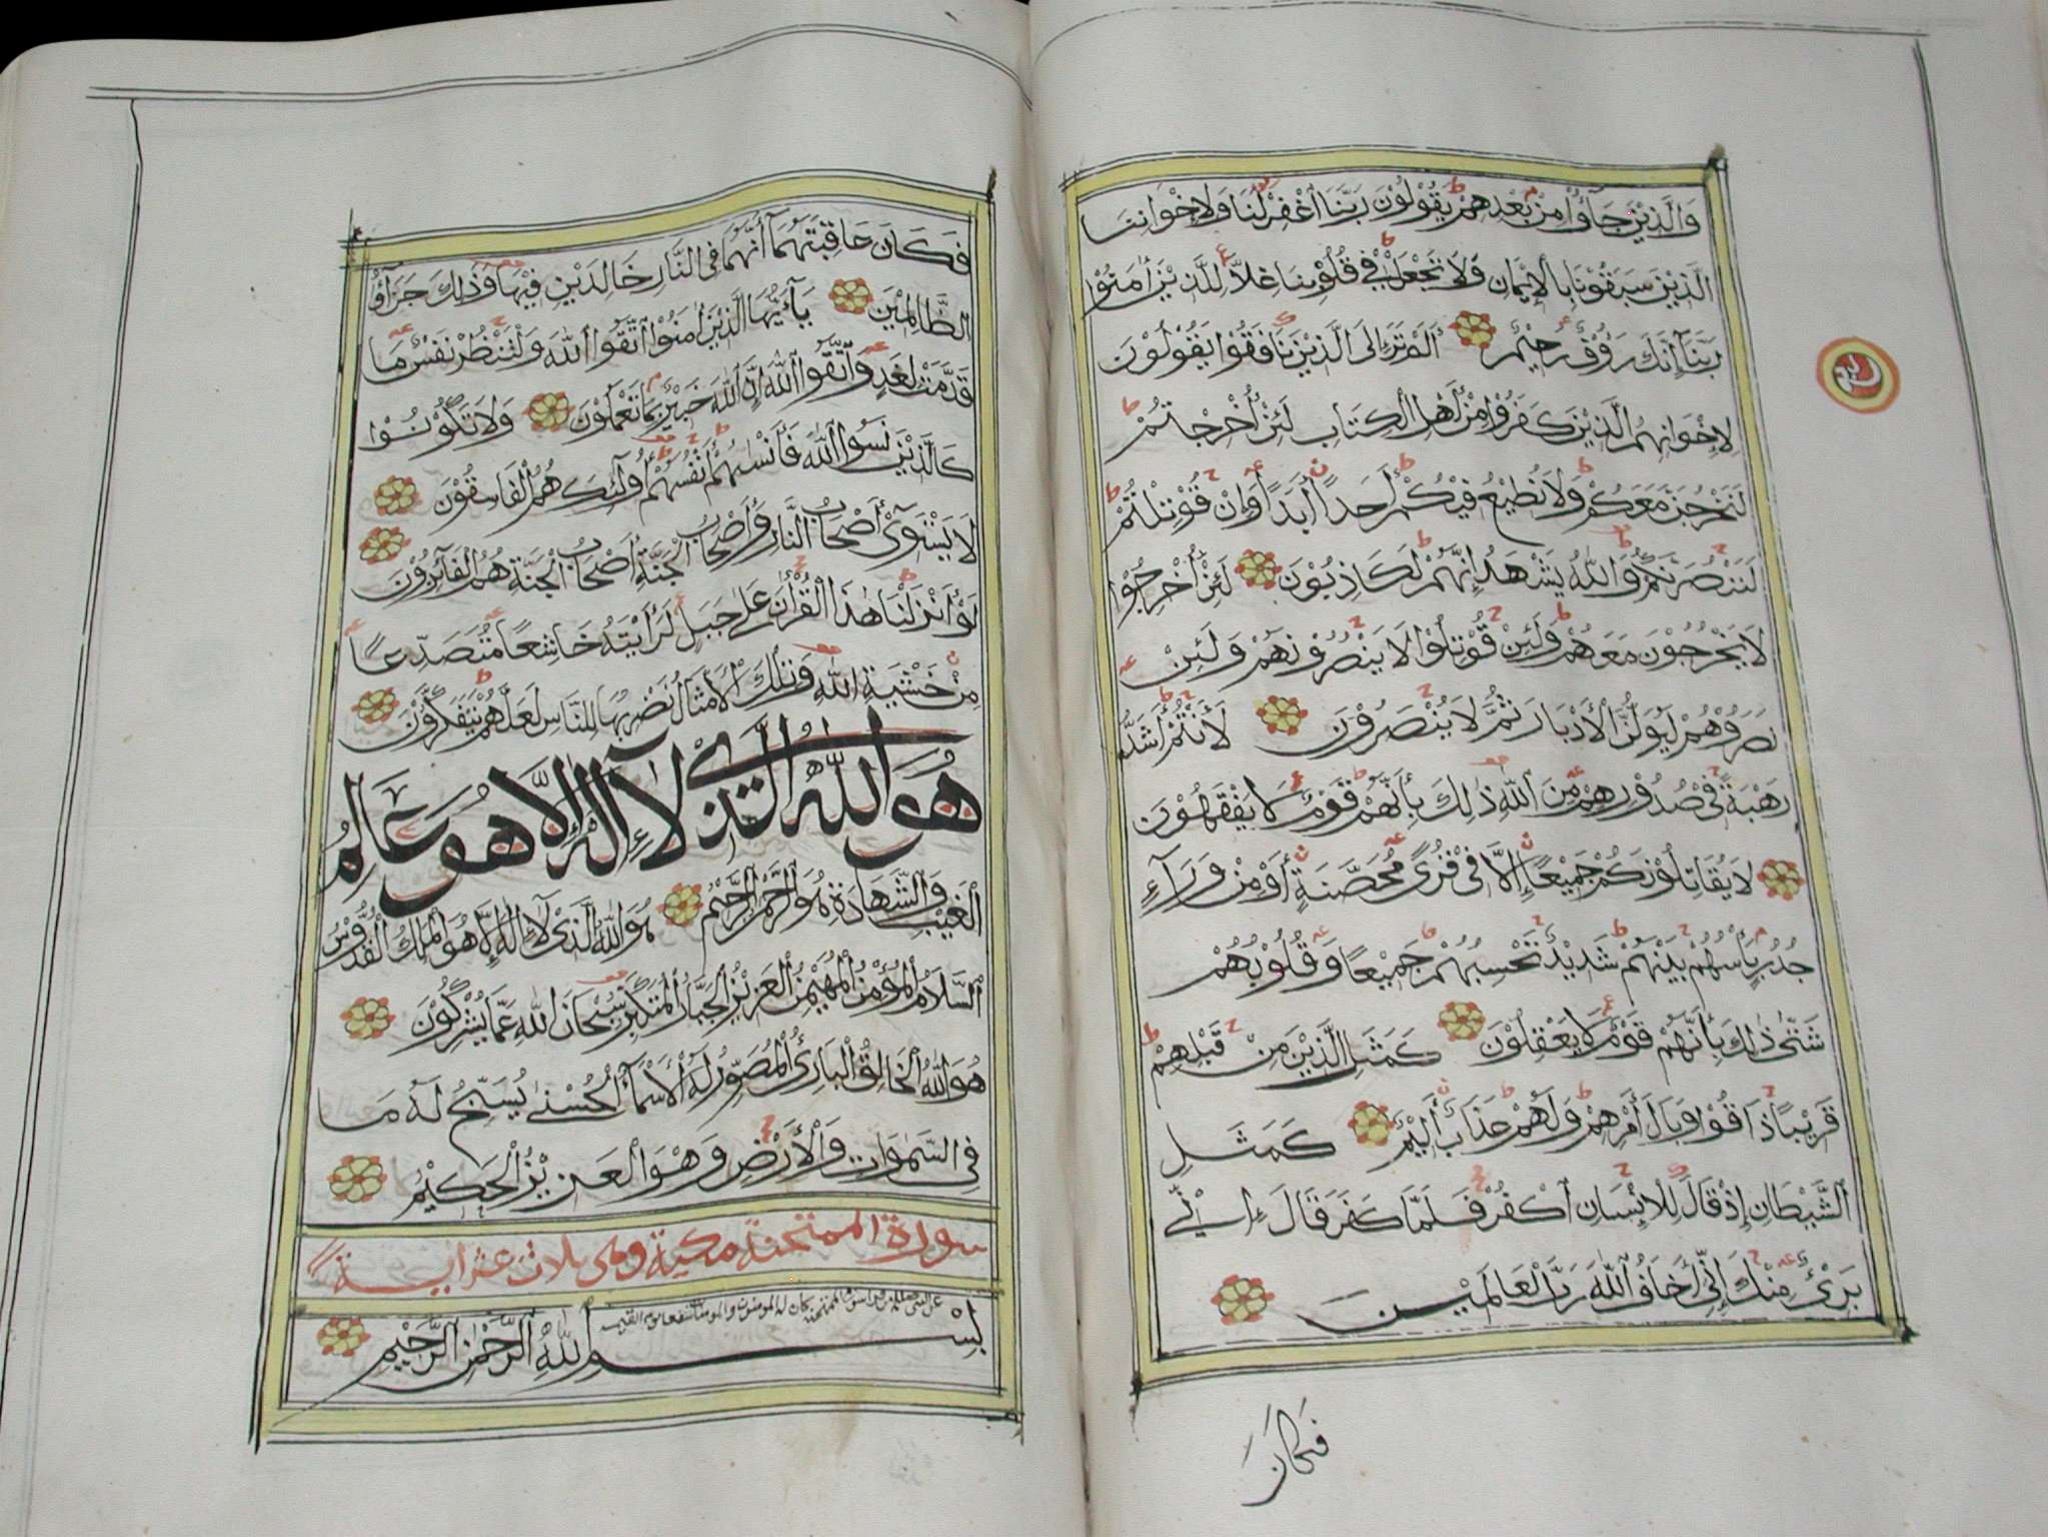 وَالَّذِيْنَ جَآؤُا مِنْ بَعْدِهِمْ يَقُوْلُوْنَ رَبَّنَا اغْفِرْ لَنَا وَلِاِخْوَانِنَا
الَّذِيْنَ سَبَقُوْنَا بِالْاِيْمَانِ وَلَا تَجْعَلْ فِي قُلُوْبِنَا غِلًّا لِلَّذِيْنَ اٰمَنُوْا
رَبَّنَآ اِنَّكَ رَؤُفٌ رَحِيْمٌ اَلَمْ تَرَ اِلَى الَّذِيْنَ نَافَقُوْا يَقُوْلُوْنَ
لِاِخْوَانِهِمُ الَّذِيْنَ كَفَرُوْا مِنْ اَهْلِ الْكِتَابِ لَئِنْ اُخْرِجْتُمْ
لَنَخْرُجَنَّ مَعَكُمْ وَلَا نُطِيْعُ فِيْكُمْ اَحَدًا اَبَدًا وَاِنْ قُوْتِلْتُمْ
لَنَنْصُرَنَّكُمْ وَاللّٰهُ يَشْهَدُ اِنَّهُمْ لَكَاذِبُوْنَ لَئِنْ اُخْرِجُوْا
لَا يَخْرُجُوْنَ مَعَهُمْ وَلَئِنْ قُوْتِلُوْا لَا يَنْصُرُوْنَهُمْ وَلَئِنْ
نَصَرُوْهُمْ لَيُوَلُّنَّ الْاَدْبَارَ ثُمَّ لَا يُنْصَرُوْنَ لَاَنْتُمْ اَشَدُّ
رَهْبَةً فِيْ صُدُوْرِهِمْ مِنَ اللّٰهِ ذٰلِكَ بِاَنَّهُمْ قَوْمٌ لَا يَفْقَهُوْنَ
لَا يُقَاتِلُوْنَكُمْ جَمِيْعًا اِلَّا فِيْ قُرًى مُحَصَّنَةٍ اَوْ مِنْ وَرَآءِ
جُدُرٍ بَاْسُهُمْ بَيْنَهُمْ شَدِيْدٌ تَحْسَبُهُمْ جَمِيْعًا وَقُلُوْبُهُمْ
شَتّٰى ذٰلِكَ بِاَنَّهُمْ قَوْمٌ لَا يَعْقِلُوْنَ كَمَثَلِ الَّذِيْنَ مِنْ قَبْلِهِمْ
قَرِيْبًا ذَاقُوْا وَبَالَ اَمْرِهِمْ وَلَهُمْ عَذَابٌ اَلِيْمٌ كَمَثَلِ
الشَّيْطَانِ اِذْ قَالَ لِلْاِنْسَانِ اكْفُرْ فَلَمَّا كَفَرَ قَالَ اِنِّيْ
بَرِيْءٌ مِنْكَ اِنِّيْ اَخَافُ اللّٰهَ رَبَّ الْعَالَمِيْنَ
فَكَانَ
فَكَانَ عَاقِبَتَهُمَآ اَنَّهُمَا فِي النَّارِ خَالِدَيْنِ فِيْهَا وَذٰلِكَ جَزَآؤُا
الظَّالِمِيْنَ يَآ اَيُّهَا الَّذِيْنَ اٰمَنُوا اتَّقُوا اللّٰهَ وَلْتَنْظُرْ نَفْسٌ مَا
قَدَّمَتْ لِغَدٍ وَاتَّقُوا اللّٰهَ اِنَّ اللّٰهَ خَبِيْرٌ بِمَا تَعْمَلُوْنَ وَلَا تَكُوْنُوْا
كَالَّذِيْنَ نَسُوا اللّٰهَ فَاَنْسٰىهُمْ اَنْفُسَهُمْ اُولٰٓئِكَ هُمُ الْفَاسِقُوْنَ
لَا يَسْتَوِيْ اَصْحَابُ النَّارِ وَاَصْحَابُ الْجَنَّةِ اَصْحَابُ الْجَنَّةِ هُمُ الْفَآئِزُوْنَ
لَوْ اَنْزَلْنَا هٰذَا الْقُرْاٰنَ عَلٰى جَبَلٍ لَرَاَيْتَهُ خَاشِعًا مُتَصَدِّعًا
مِنْ خَشْيَةِ اللّٰهِ وَتِلْكَ الْاَمْثَالُ نَضْرِبُهَا لِلنَّاسِ لَعَلَّهُمْ يَتَفَكَّرُوْنَ
هُوَ اللّٰهُ الَّذِيْ لَآ اِلٰهَ اِلَّا هُوَ عَالِمُ
الْغَيْبِ وَالشَّهَادَةِ هُوَ الرَّحْمٰنُ الرَّحِيْمُ هُوَ اللّٰهُ الَّذِيْ لَآ اِلٰهَ اِلَّا هُوَ الْمَلِكُ الْقُدُّوْسُ
السَّلَامُ الْمُؤْمِنُ الْمُهَيْمِنُ الْعَزِيْزُ الْجَبَّارُ الْمُتَكَبِّرُ سُبْحَانَ اللّٰهِ عَمَّا يُشْرِكُوْنَ
هُوَ اللّٰهُ الْخَالِقُ الْبَارِئُ الْمُصَوِّرُ لَهُ الْاَسْمَآءُ الْحُسْنٰى يُسَبِّحُ لَهُ مَا
فِي السَّمٰوَاتِ وَالْاَرْضِ وَهُوَ الْعَزِيْزُ الْحَكِيْمُ
سورة الممتحنة مكية وهي ثلاث عشر اية
بِسْمِ اللّٰهِ الرَّحْمٰنِ الرَّحِيْمِ